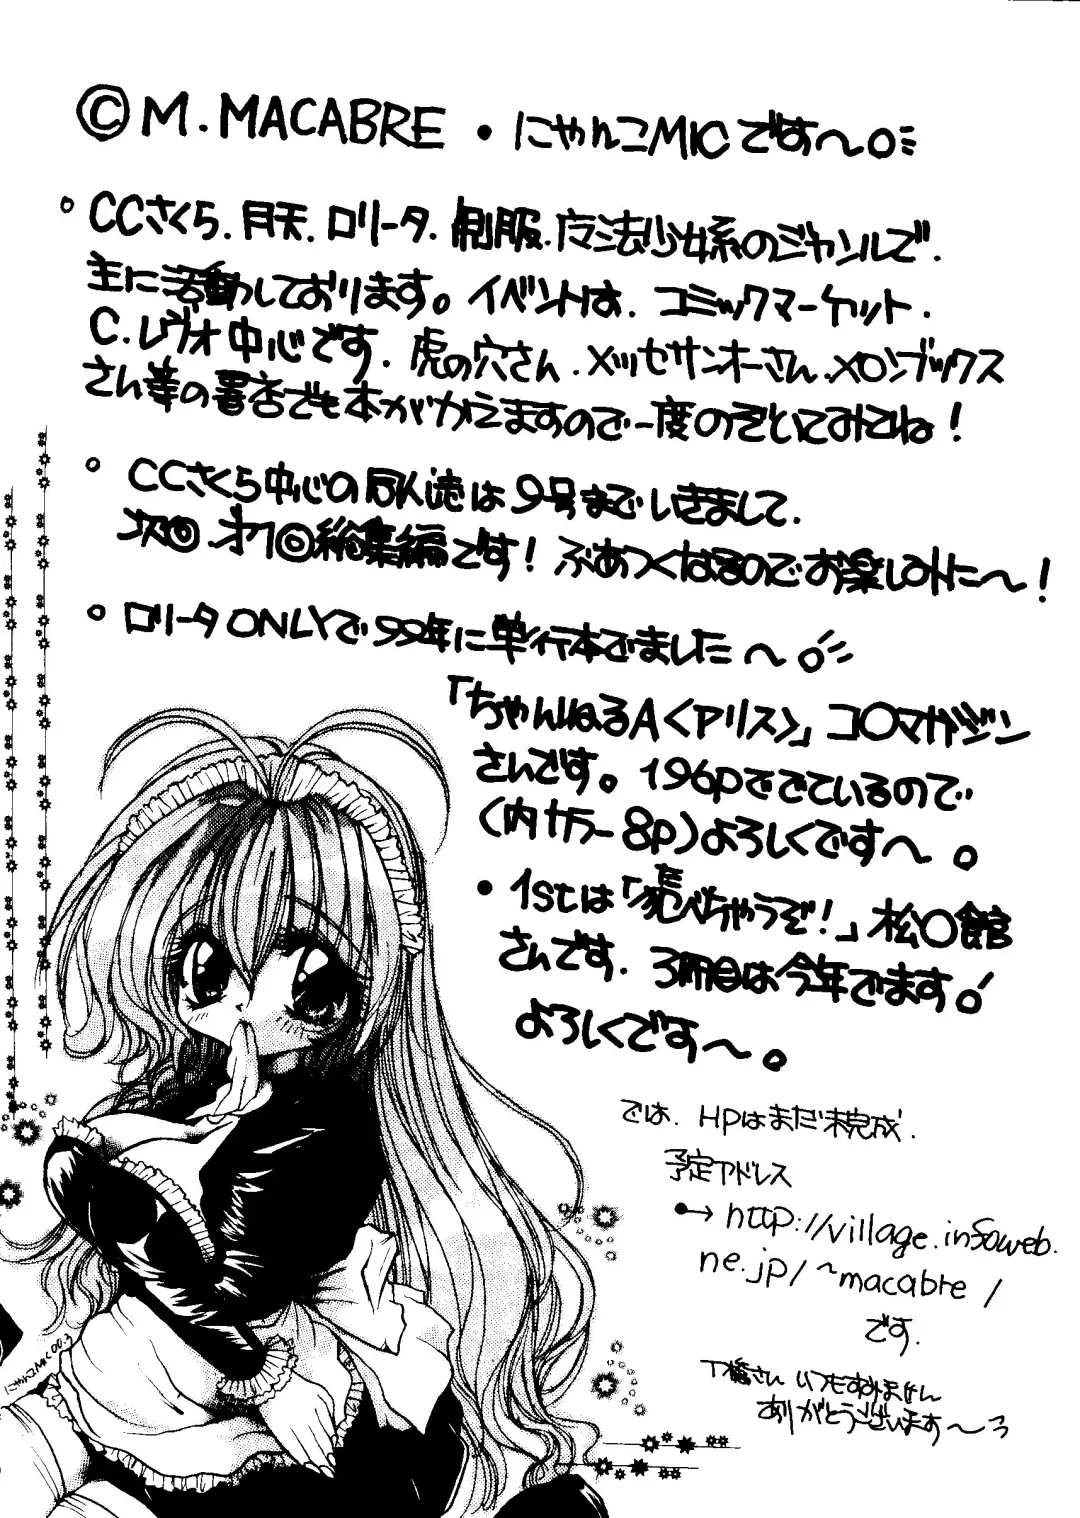 ©M.MACABRE・にゃんこMICです〜。
。CCさくら.月天.ロリータ.制服.魔法少女系のジャンルで.
主に活動しております。イベントは.コミックマーケット.
C.レヴォ中心です.虎の穴さん.メッセサンオーさん.メロンブックス
さん等の書店でも本がかえますので一度のぞいてみてね!
。CCさくら中心の同人誌は9号までいきまして.
次回.オ10回総集編です!ぶあつくなるのでお楽しみに〜!
。ロリータONLYで99年に単行本でました〜。
「ちゃんねるA<アリス>」コ〇マガジン
さんです。196pででているので
(内カラー8p)よろしくです〜。
・1stは「べちゃうぞ!」松〇館
さんです.3冊目は今年でます。
よろしくです〜。
では.HPはまだ未完成.
予定アドレス
→http://village.infoweb.
ne.jp/~macabre/
です.
T橋さんいつもすみません
ありがとうございます〜
にゃんこMIC 00.3